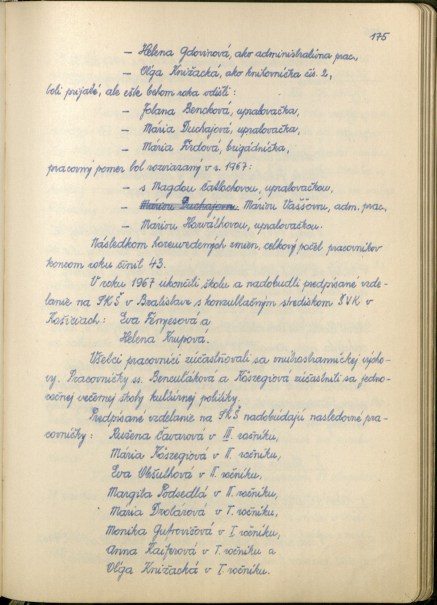 175
– Helena Gdovinová, ako administratívna prac.,
– Oľga Knižacká, ako knihovníčka čís. 2,
boli prijaté, ale ešte behom roka odišli:
– Jolana Bencková, upratovačka,
– Mária Duchajová, upratovačka,
– Mária Firdová, brigádnička,
pracovný pomer bol rozviazaný v r. 1967:
– s Magdou Ballochovou, upratovačkou,
– Máriou Duchajovou Máriou Vaššovou, adm. prac.
– Máriou Horváthovou, upratovačkou.
Následkom horeuvedených zmien, celkový počet pracovníkov
koncom roku činil 43.
V roku 1967 ukončili školu a nadobudli predpísané vzde-
lanie na SKŠ v Bratislave s konzultačným strediskom ŠVK v
Košiciach: Eva Fenyesová a
Helena Krupová.
Všetci pracovníci zúčastňovali sa mimoškolskej výcho-
vy. Pracovníčky ss. Benčuláková a Köszegiová zúčastnili sa jedno-
ročnej večernej školy kultúrnej politiky.
Predpísané vzdelanie na SKŠ nadobúdajú nasledovné pra-
covníčky: Ružena Čavarová v III. ročníku,
Mária Köszegiová v II. ročníku,
Eva v II. ročníku,
Margita Podsedlá v II. ročníku,
Mária Drotárová v I. ročníku,
Monika Gutrovičová v I. ročníku,
Anna Kaiferová v I. ročníku a
Oľga Knižacká v I. ročníku.